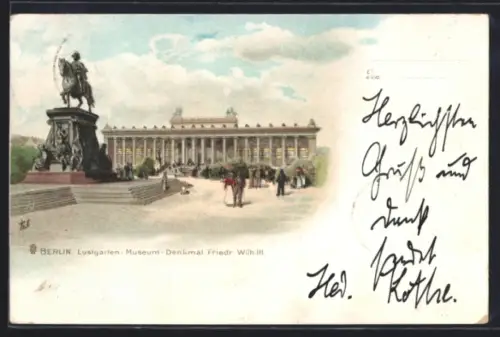 BERLIN. Lustgarten - Museum - Denkmal Friedr. Wilh. III.
Herzlichsten
Gruß und
Dank
sendet
Hed.